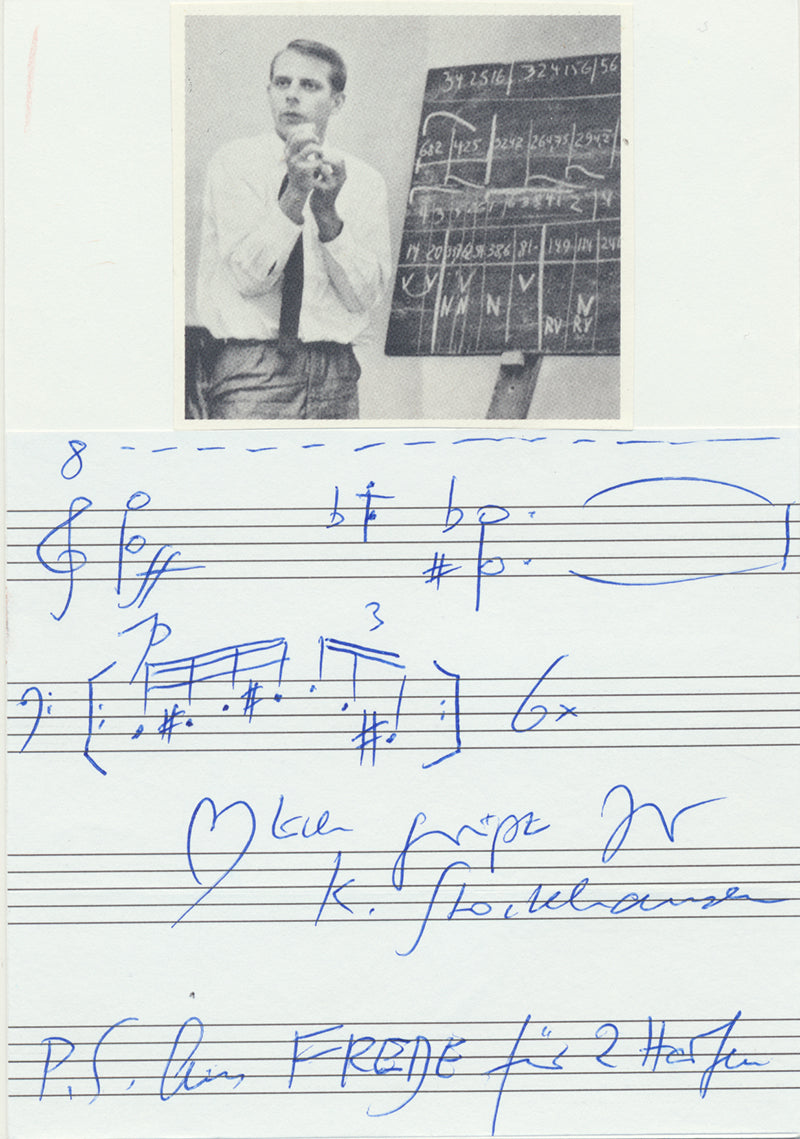 342516/ 324156/56
682 425 3242 26475 2942
14 20 386 81 149 114 246
V V V V
N N N N
RV RV
8
ff
p 3
6x
♡lich grüßt Ihr
K. Stockhausen
P.S. Aus FREUDE für 2 Harfen